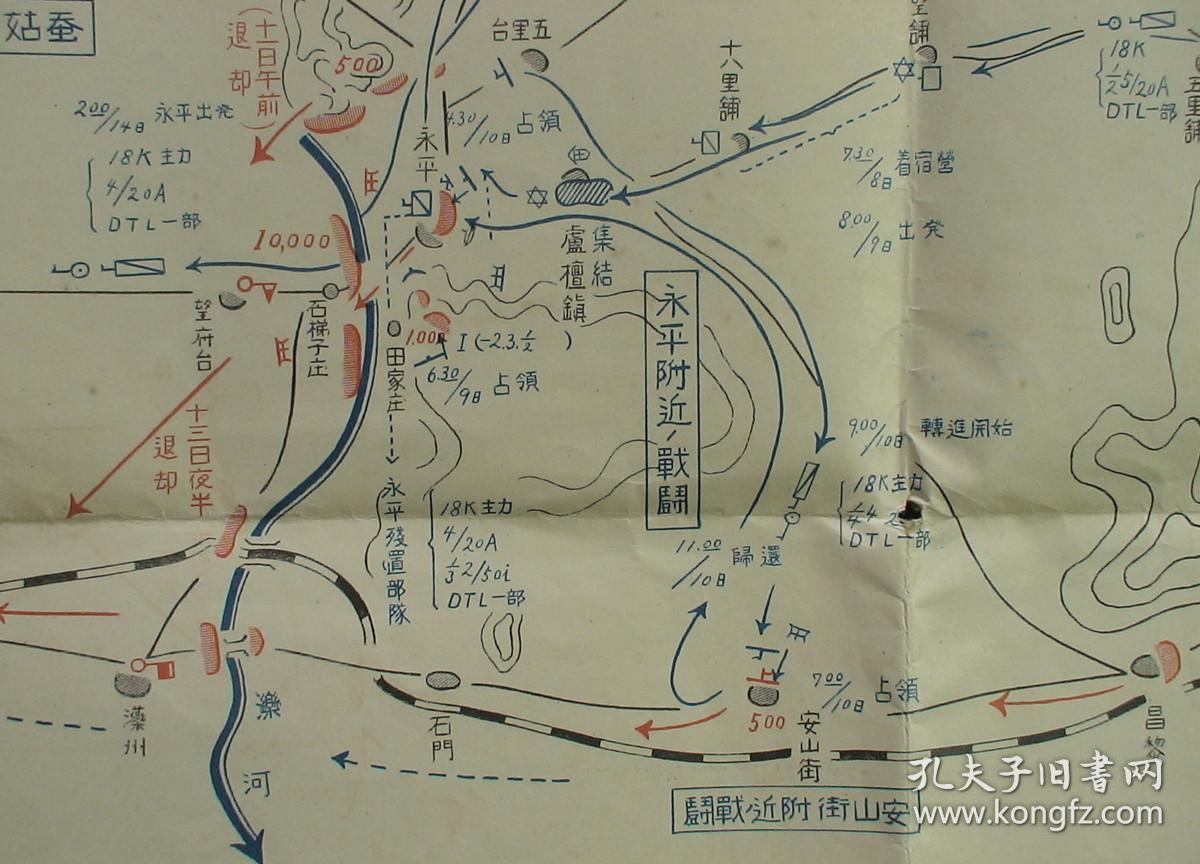 蚕姑
十一日午前
退却
500
五里台
十八里舗
18K
1/2 5/20A
DTL一部
五里舗
2.00/14日 永平出発
18K 主力
4/20A
DTL一部
永平
4.30/10日 占領
7.30/8日 着宿營
8.00/9日 出発
10,000
集結
盧檀鎮
望府台
石梯子庄
1.000
I(-2.3.½ )
田家庄
6.30/9日 占領
永平附近ノ戰鬪
十三日夜半
退却
9.00/10日 轉進開始
18K主力
DTL一部
永平殘置部隊
18K主力
4/20A
⅓ 2/50i
DTL一部
11.00/10日 歸還
灤州
灤河
石門
7.00/10日 占領
500
安山街
昌黎
安山街附近ノ戰鬪
孔夫子旧书网
www.kongfz.com